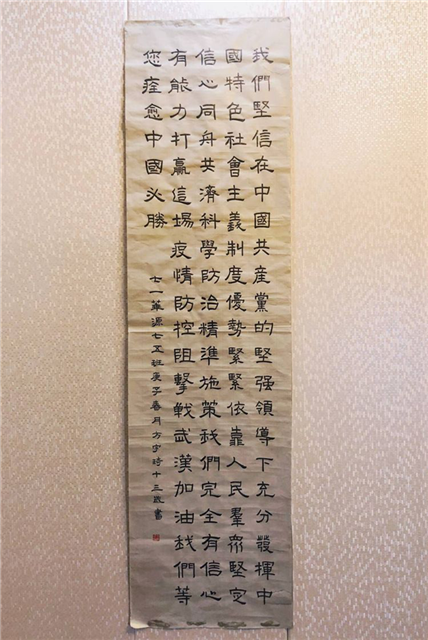 我們堅信在中國共產黨的堅强領導下充分發揮中
國特色社會主義制度優勢緊緊依靠人民羣眾堅定
信心同舟共濟科學防治精準施策我們完全有信心
有能力打贏這場疫情防控阻擊戰武漢加油我們等
您痊愈中國必勝
七一華源七五班庚子春月方宇詩十三歲書